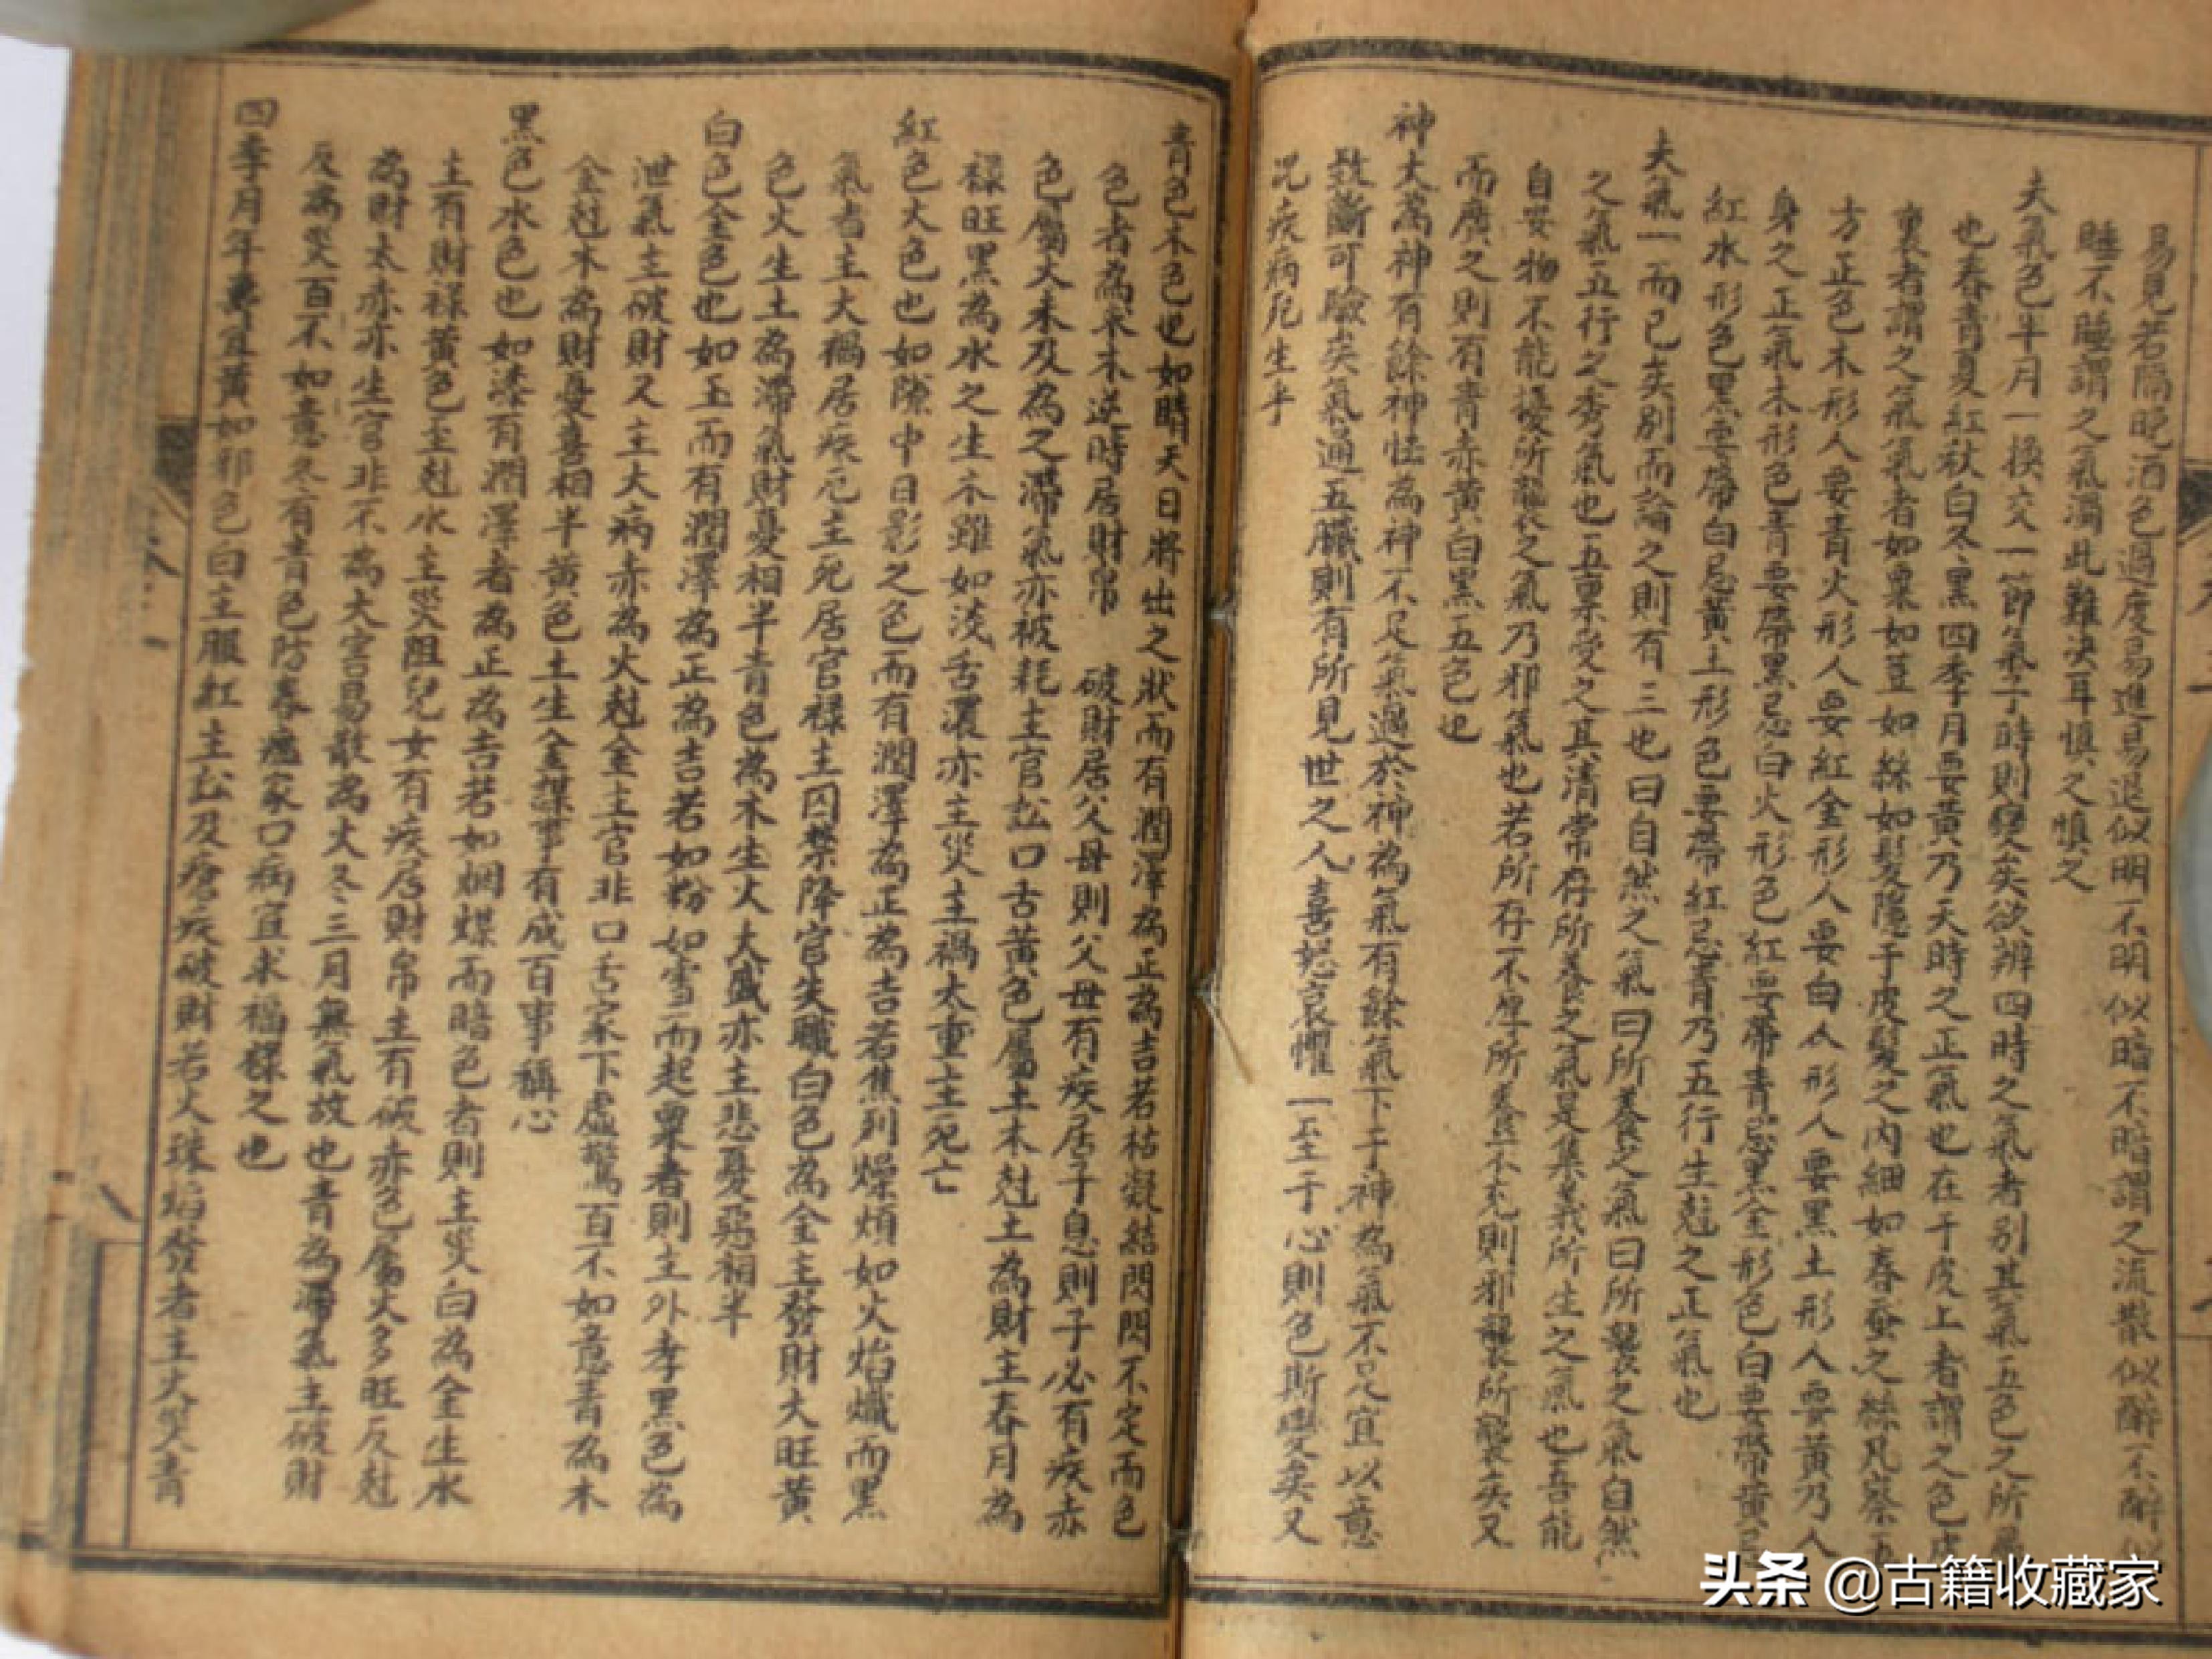 易見若隔晚酒色過度易進易退似明不明似暗不暗謂之流散似醉不醉似
睡不睡謂之氣濁此難決耳慎之慎之
夫氣色半月一換交一節氣子時則變矣欲辨四時之氣者別其氣五色之所屬
也春青夏紅秋白冬黑四季月要黃乃天時之正氣也在于皮上者謂之色皮
裏者謂之氣氣者如粟如荳如絲如髮隱于皮髮之內細如春蚕之絲凡察五
方正色木形人要青火形人要紅金形人要白水形人要黑土形人要黃乃人
身之正氣木形色青要帶黑忌白火形色紅要帶青忌黑金形色白要帶黃忌
紅水形色黑要帶白忌黃土形色要帶紅忌青乃五行生尅之正氣也
夫氣一而已矣別而論之則有三也曰自然之氣曰所養之氣曰所襲之氣自然
之氣五行之秀氣也五稟受之其清常存所養之氣是集義所生之氣也吾能
自安物不能擾所襲之氣乃邪氣也若所存不厚所養不充則邪襲所襲矣又
而廣之則有青赤黃白黑五色也
神大為神有餘神怯為神不足氣過於神為氣有餘氣下于神為氣不足宜以意
致斷可驗矣氣通五臟則有所見世之人喜怒哀懼一至于心則色斯變矣又
况疾病死生乎
青色木色也如晴天日將出之狀而有潤澤為正為吉若枯凝結閃閃不定而色
色者為木逆時居財帛 破財居父母則父母有疾居子息則子必有疾赤
色屬火未及為之滯氣亦被耗主官訟口舌黃色屬土木尅土為財主春月為
祿旺黑為水之生木雖如淡舌濃亦主災主禍太重主死亡
紅色火色也如隙中日影之色而有潤澤為正為吉若焦列燥煩如火焰熾而黑
氣者主大禍居疾厄主死居官祿主囚禁降官失職白色為金主發財大旺黃
色火生土為滯氣財憂相半青色為木生火大盛亦主悲憂惡相半
白色金色也如玉而有潤澤為正為吉若如粉如雪而起粟者則主外孝黑色為
泄氣主破財又主大病赤為火尅金主官非口舌家下虛驚百不如意青為木
金尅木為財憂喜相半黃色土生金謀事有成百事稱心
黑色水色也如漆有潤澤者為正為吉若如烟煤而暗色者則主災白為金生水
主有財祿黃色土尅水主災阻兒女有疾居財帛主有破赤色屬火多旺反尅
為財太赤亦生官非不為大害易散為火冬三月無氣故也青為滯氣主破財
反為災百不如意冬有青色防春瘟家口病宜求福禄之也
四季月年壽宜黃如邪色白主服紅主訟及瘡疾破財若火珠焰發者主火災青
头条 @古籍收藏家